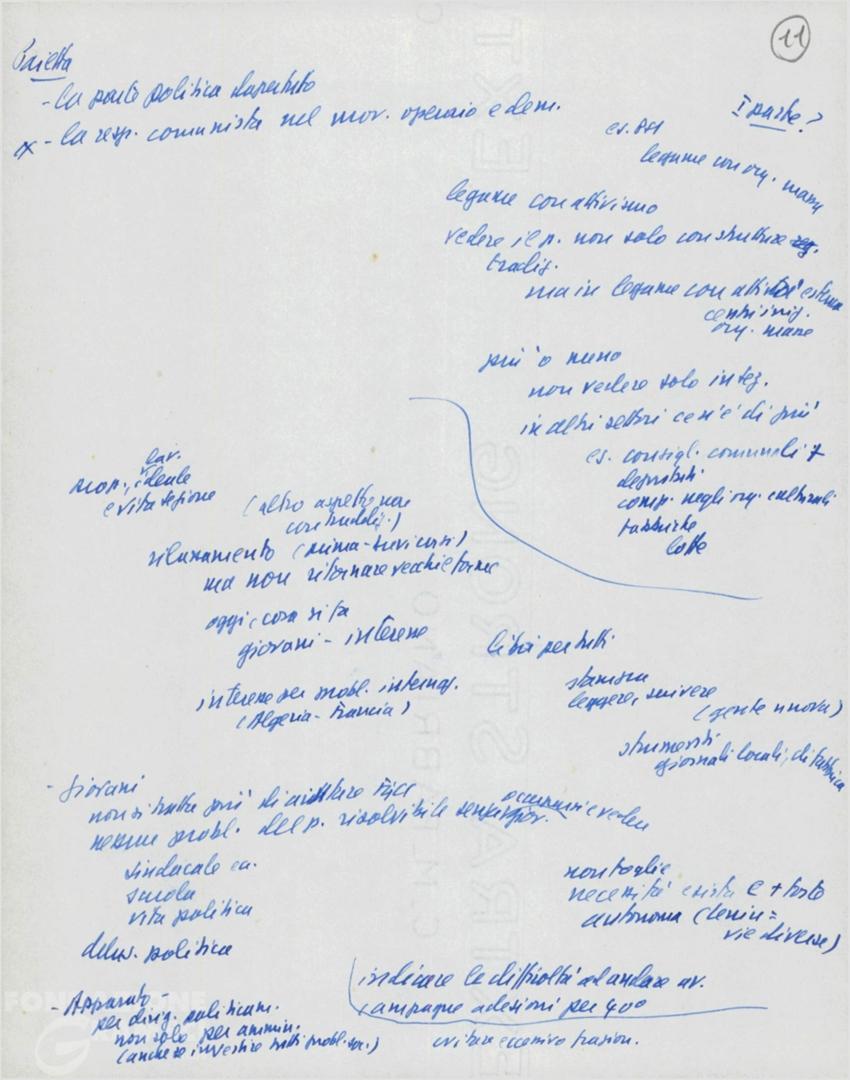 11
Paietta
- la parte politica dapertutto
x - la resp. comunista nel mov. operaio e dem.
I parte?
es. PSI
legame con org. massa
legame con attivismo
vedere il p. non solo con strutture
tradiz.
ma in legame con attività esterna
centri iniz.
org. massa
più o meno
non vedere solo integ.
in altri settori ce n'è di più
es. consigl. comunali
deputati
comp. negli org. culturali
fabbriche
lotte
lav.
ideale
e vita sezione
(altro aspetto non
contraddiz.)
rilanciamento (prima - corsi)
ma non ritornare vecchie forme
oggi, cosa si fa
giovani - interesse
interesse per probl. internaz.
(Algeria - Francia)
libri per tutti
stampa
leggere, scrivere
(gente nuova)
strumenti
giornali locali, di fabbrica
- Giovani
non si tratta più di aiutare FGCI
nessun probl. del p. risolvibile senza giov.
sindacale ec.
scuola
vita politica
politica
non toglie
necessità esista e + forte
autonoma (Lenin =
vie diverse)
- Apparato
per dirig. politicam.
non solo per ammin.
(anche investire tutti probl.)
indicare le difficoltà ad andare av.
campagne adesioni per 40°
evitare eccessivo
FONDAZIONE
G
EXTRA STRONG
C. M. FABRIANO